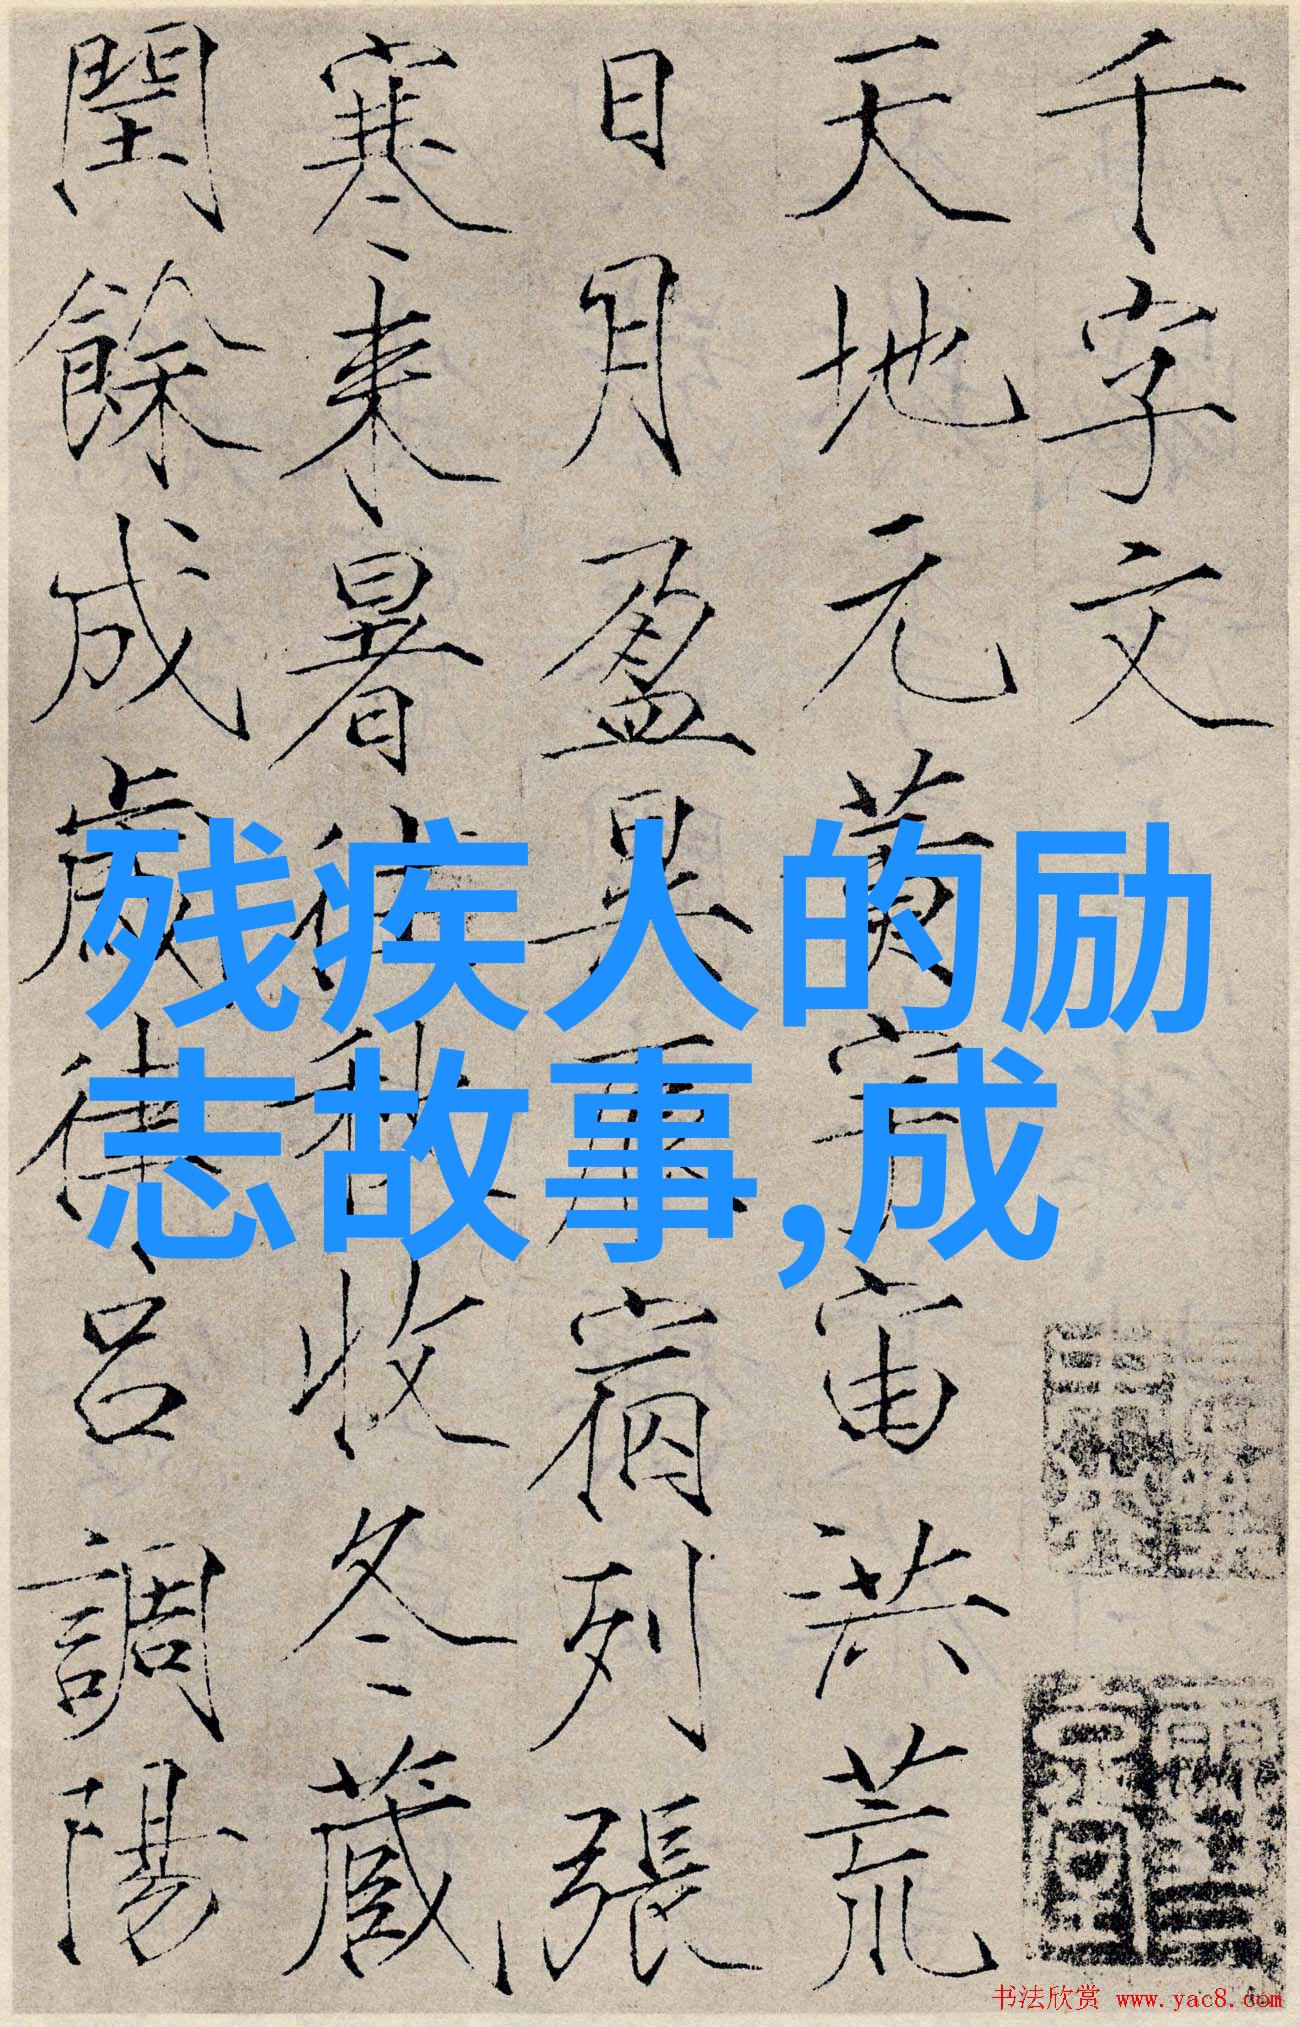 千字文
天地元黄宇宙洪荒
日月盈昃辰宿列張
寒来暑往秋收冬藏
閏餘成歲律吕調陽
残疾人的励
志故事,成
书法欣赏 www.yac8.com